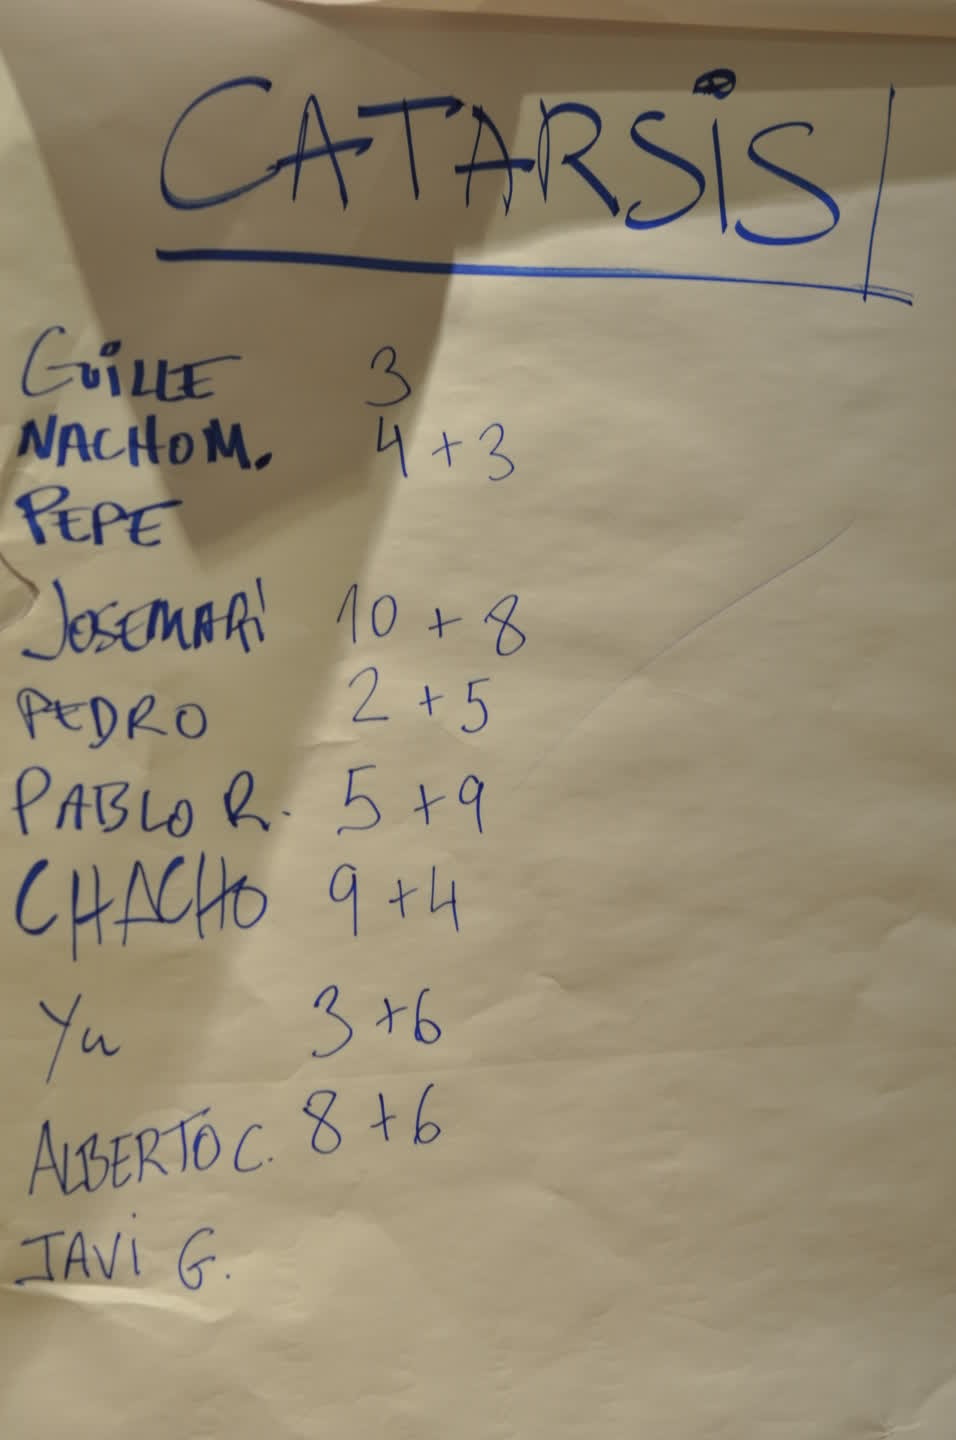 CATARSiS
GUiLLE 3
NACHO M. 4 + 3
PEPE
JOSEMARi 10 + 8
PEDRO 2 + 5
PABLO R. 5 + 9
CHACHO 9 + 4
Yu 3 + 6
ALBERTO C. 8 + 6
JAVi G.